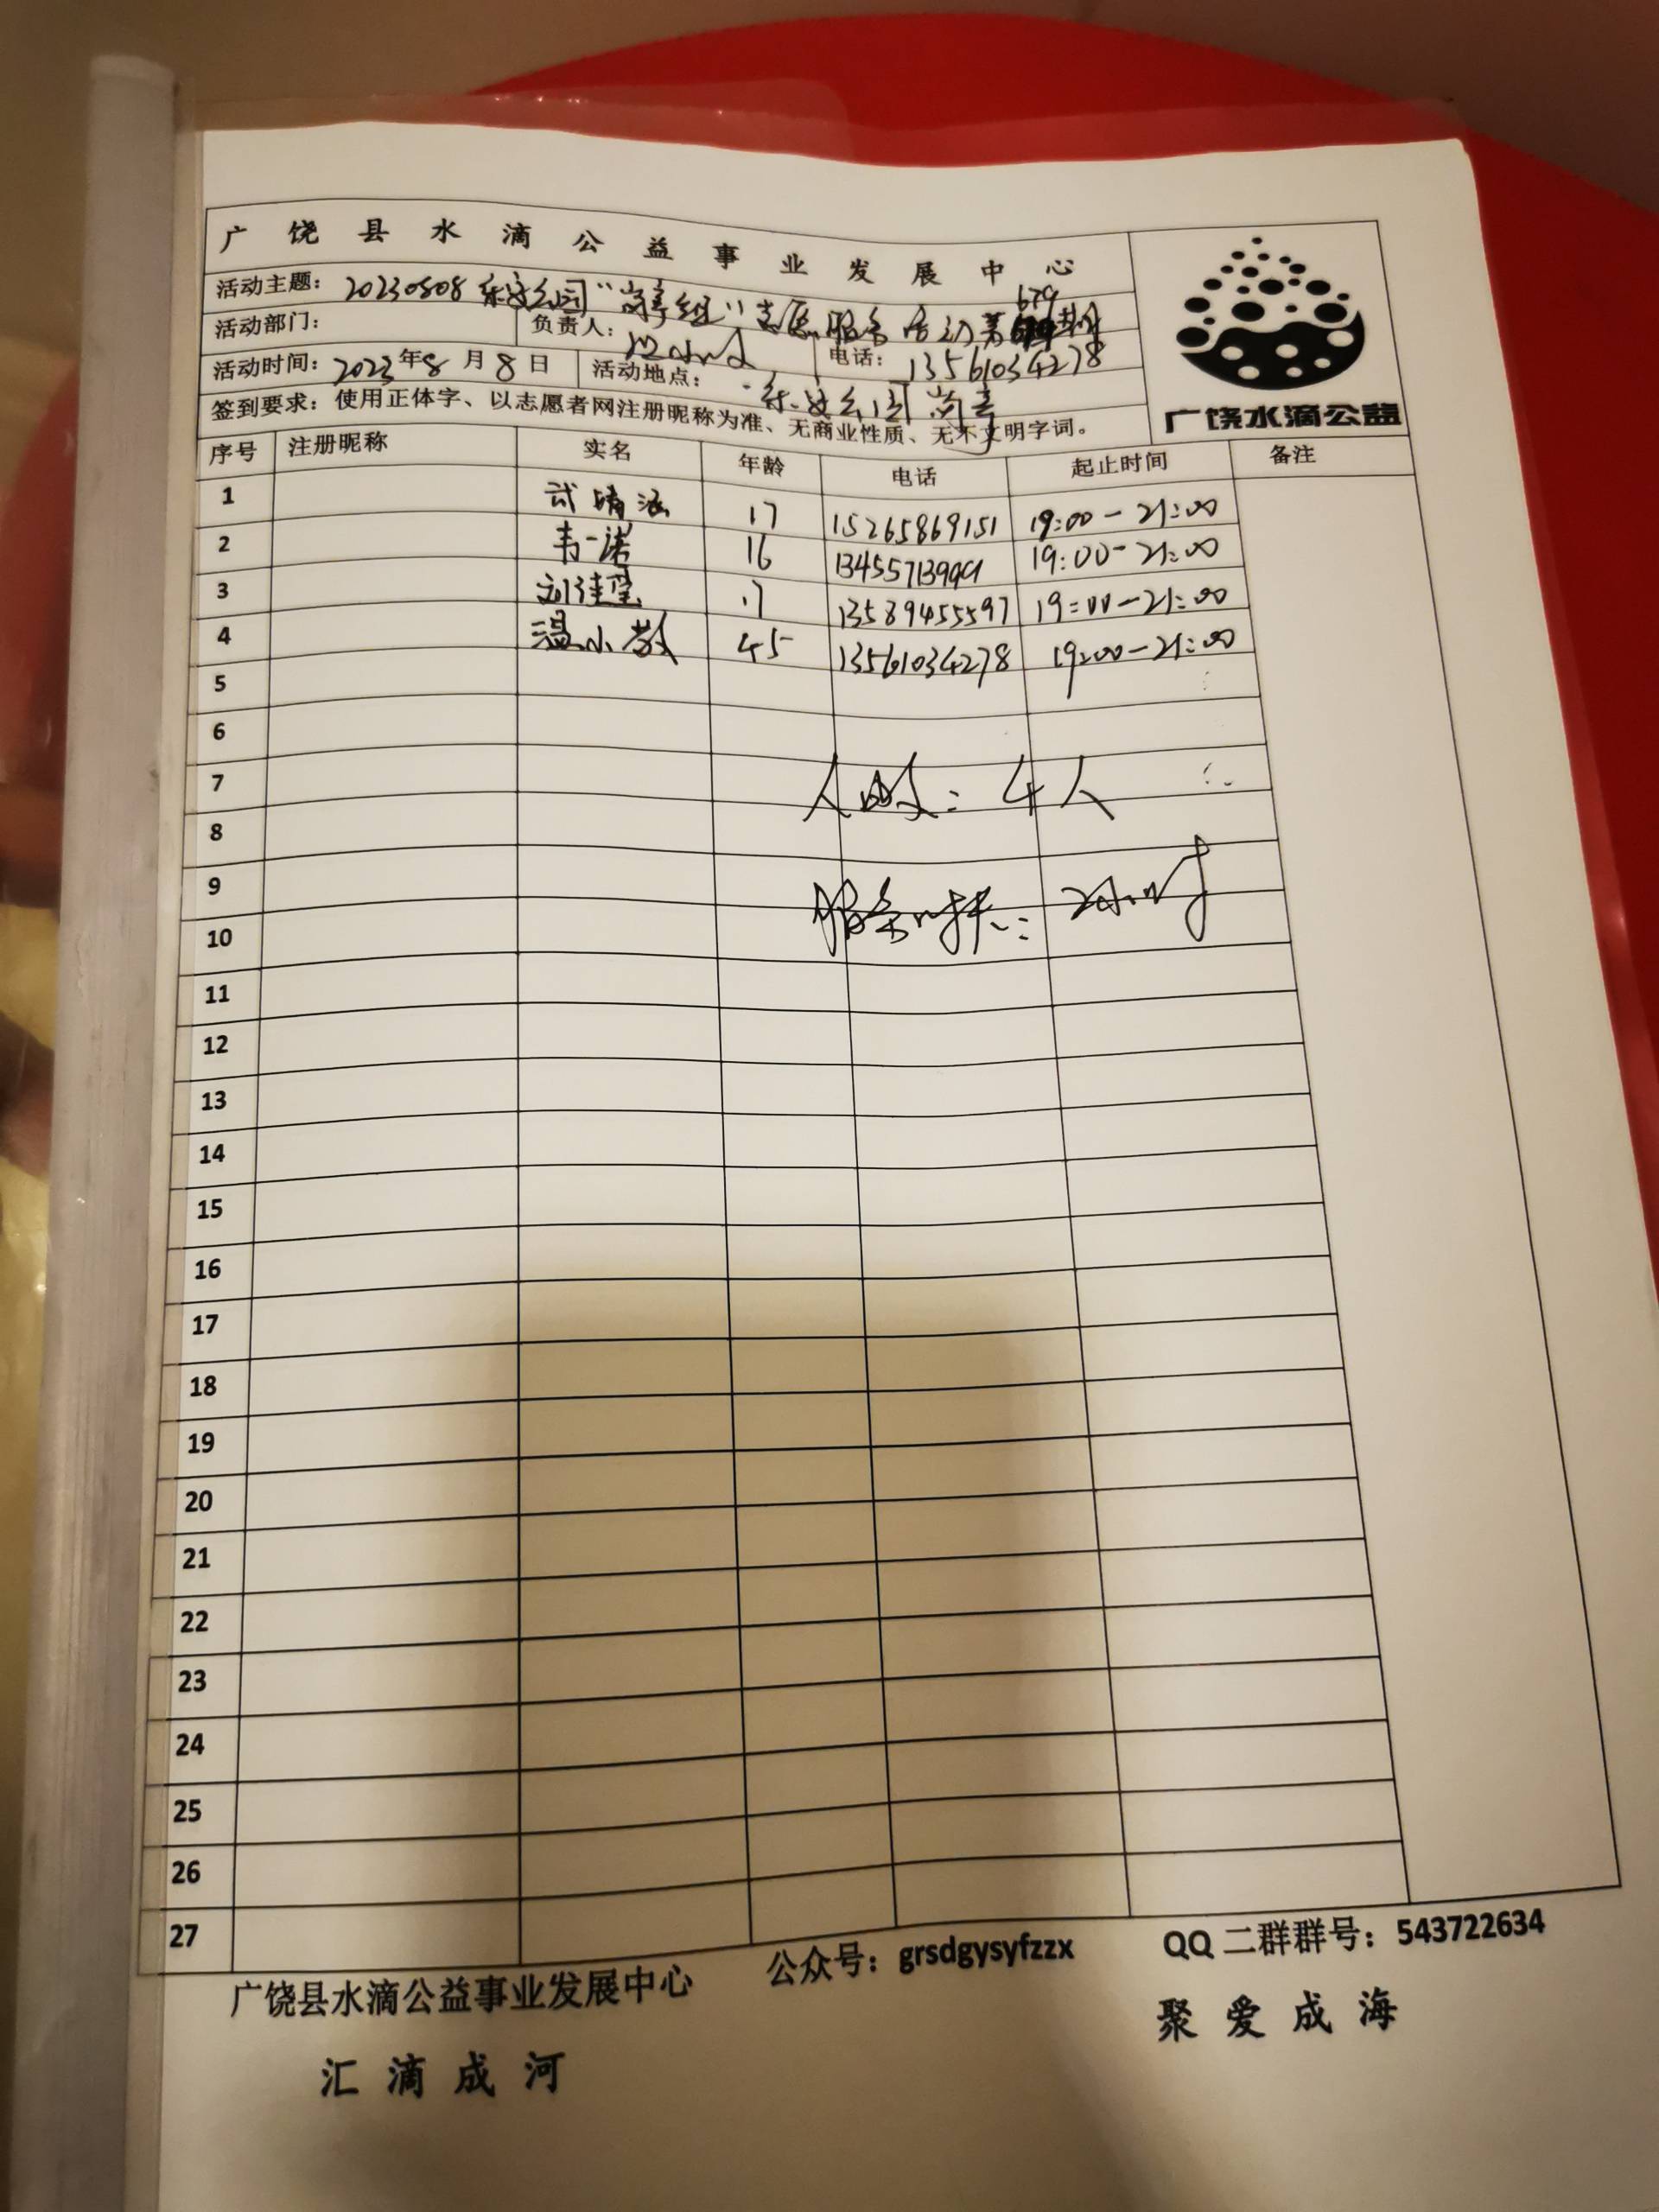 广饶县水滴公益事业发展中心
活动主题：20230808乐安公园“尚善组”志愿服务活动第679期
活动部门： 负责人：温小敏 电话：13561034278
活动时间：2023年8月8日 活动地点：乐安公园尚善
签到要求：使用正体字、以志愿者网注册昵称为准、无商业性质、无不文明字词。
广饶水滴公益
序号 注册昵称 实名 年龄 电话 起止时间 备注
1 武晴涵 17 15265869151 19:00-21:00
2 韦一诺 16 13455713999 19:00-21:00
3 刘佳玺 17 13589455597 19:00-21:00
4 温小敏 45 13561034278 19:00-21:00
5
6
7
人数：4人
8
9
服务时长：2小时
10
11
12
13
14
15
16
17
18
19
20
21
22
23
24
25
26
27
广饶县水滴公益事业发展中心 公众号：grsdgysyfzzx QQ二群群号：543722634
汇滴成河 聚爱成海